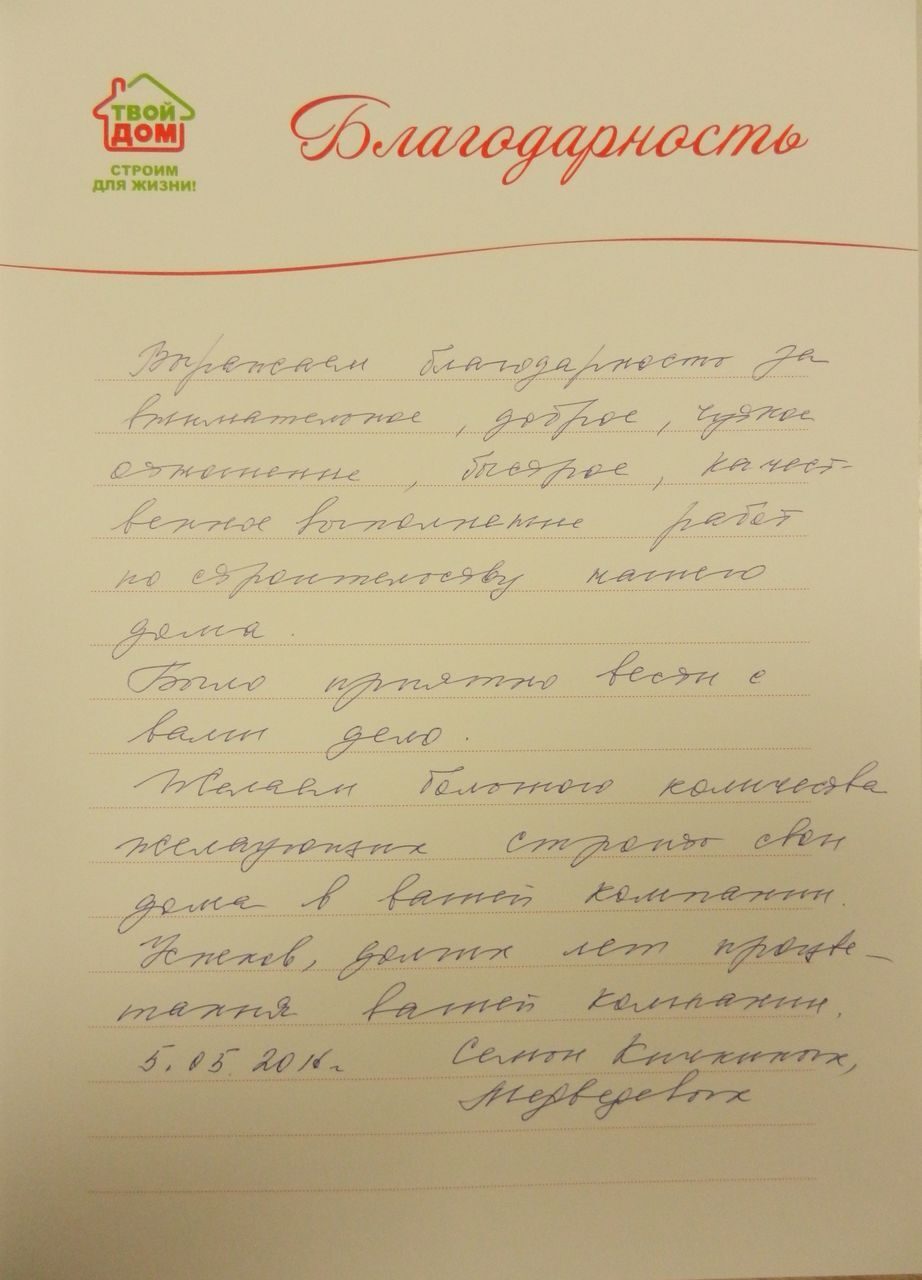 ТВОЙ
ДОМ
СТРОИМ
ДЛЯ ЖИЗНИ!
Благодарность
Выражаем благодарность за
внимательное, доброе, чуткое
отношение, быстрое, качест-
венное выполнение работ
по строительству нашего
дома.
Было приятно вести с
вами дело.
Желаем большого количества
желающих строить свои
дома в вашей компании.
Успехов, долгих лет процве-
тания вашей компании.
5.05.2016г
Семьи Кичкиных,
Медведевых